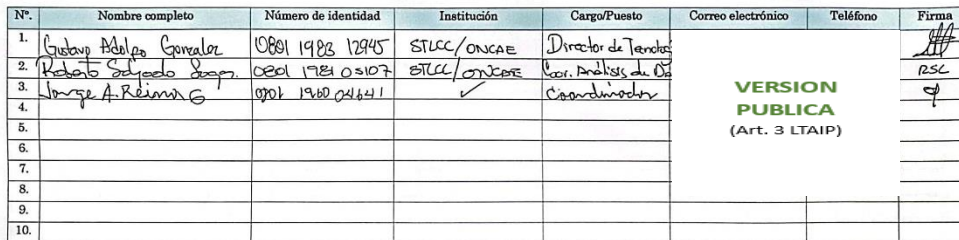 Nº. Nombre completo Número de identidad Institución Cargo/Puesto Correo electrónico Teléfono Firma
1. Gustavo Adolfo Gonzalez 0801 1983 12945 STLCC/ONCAE Director de Tecnolog
2. Roberto Salgado 0801 1981 05107 STLCC/ONCAE Coor. Análisis de Da RSL
3. Jorge A. Reina G 0801 1960 04641 ✓ Coordinador
4.
5.
6.
7.
8.
9.
10.
VERSION
PUBLICA
(Art. 3 LTAIP)